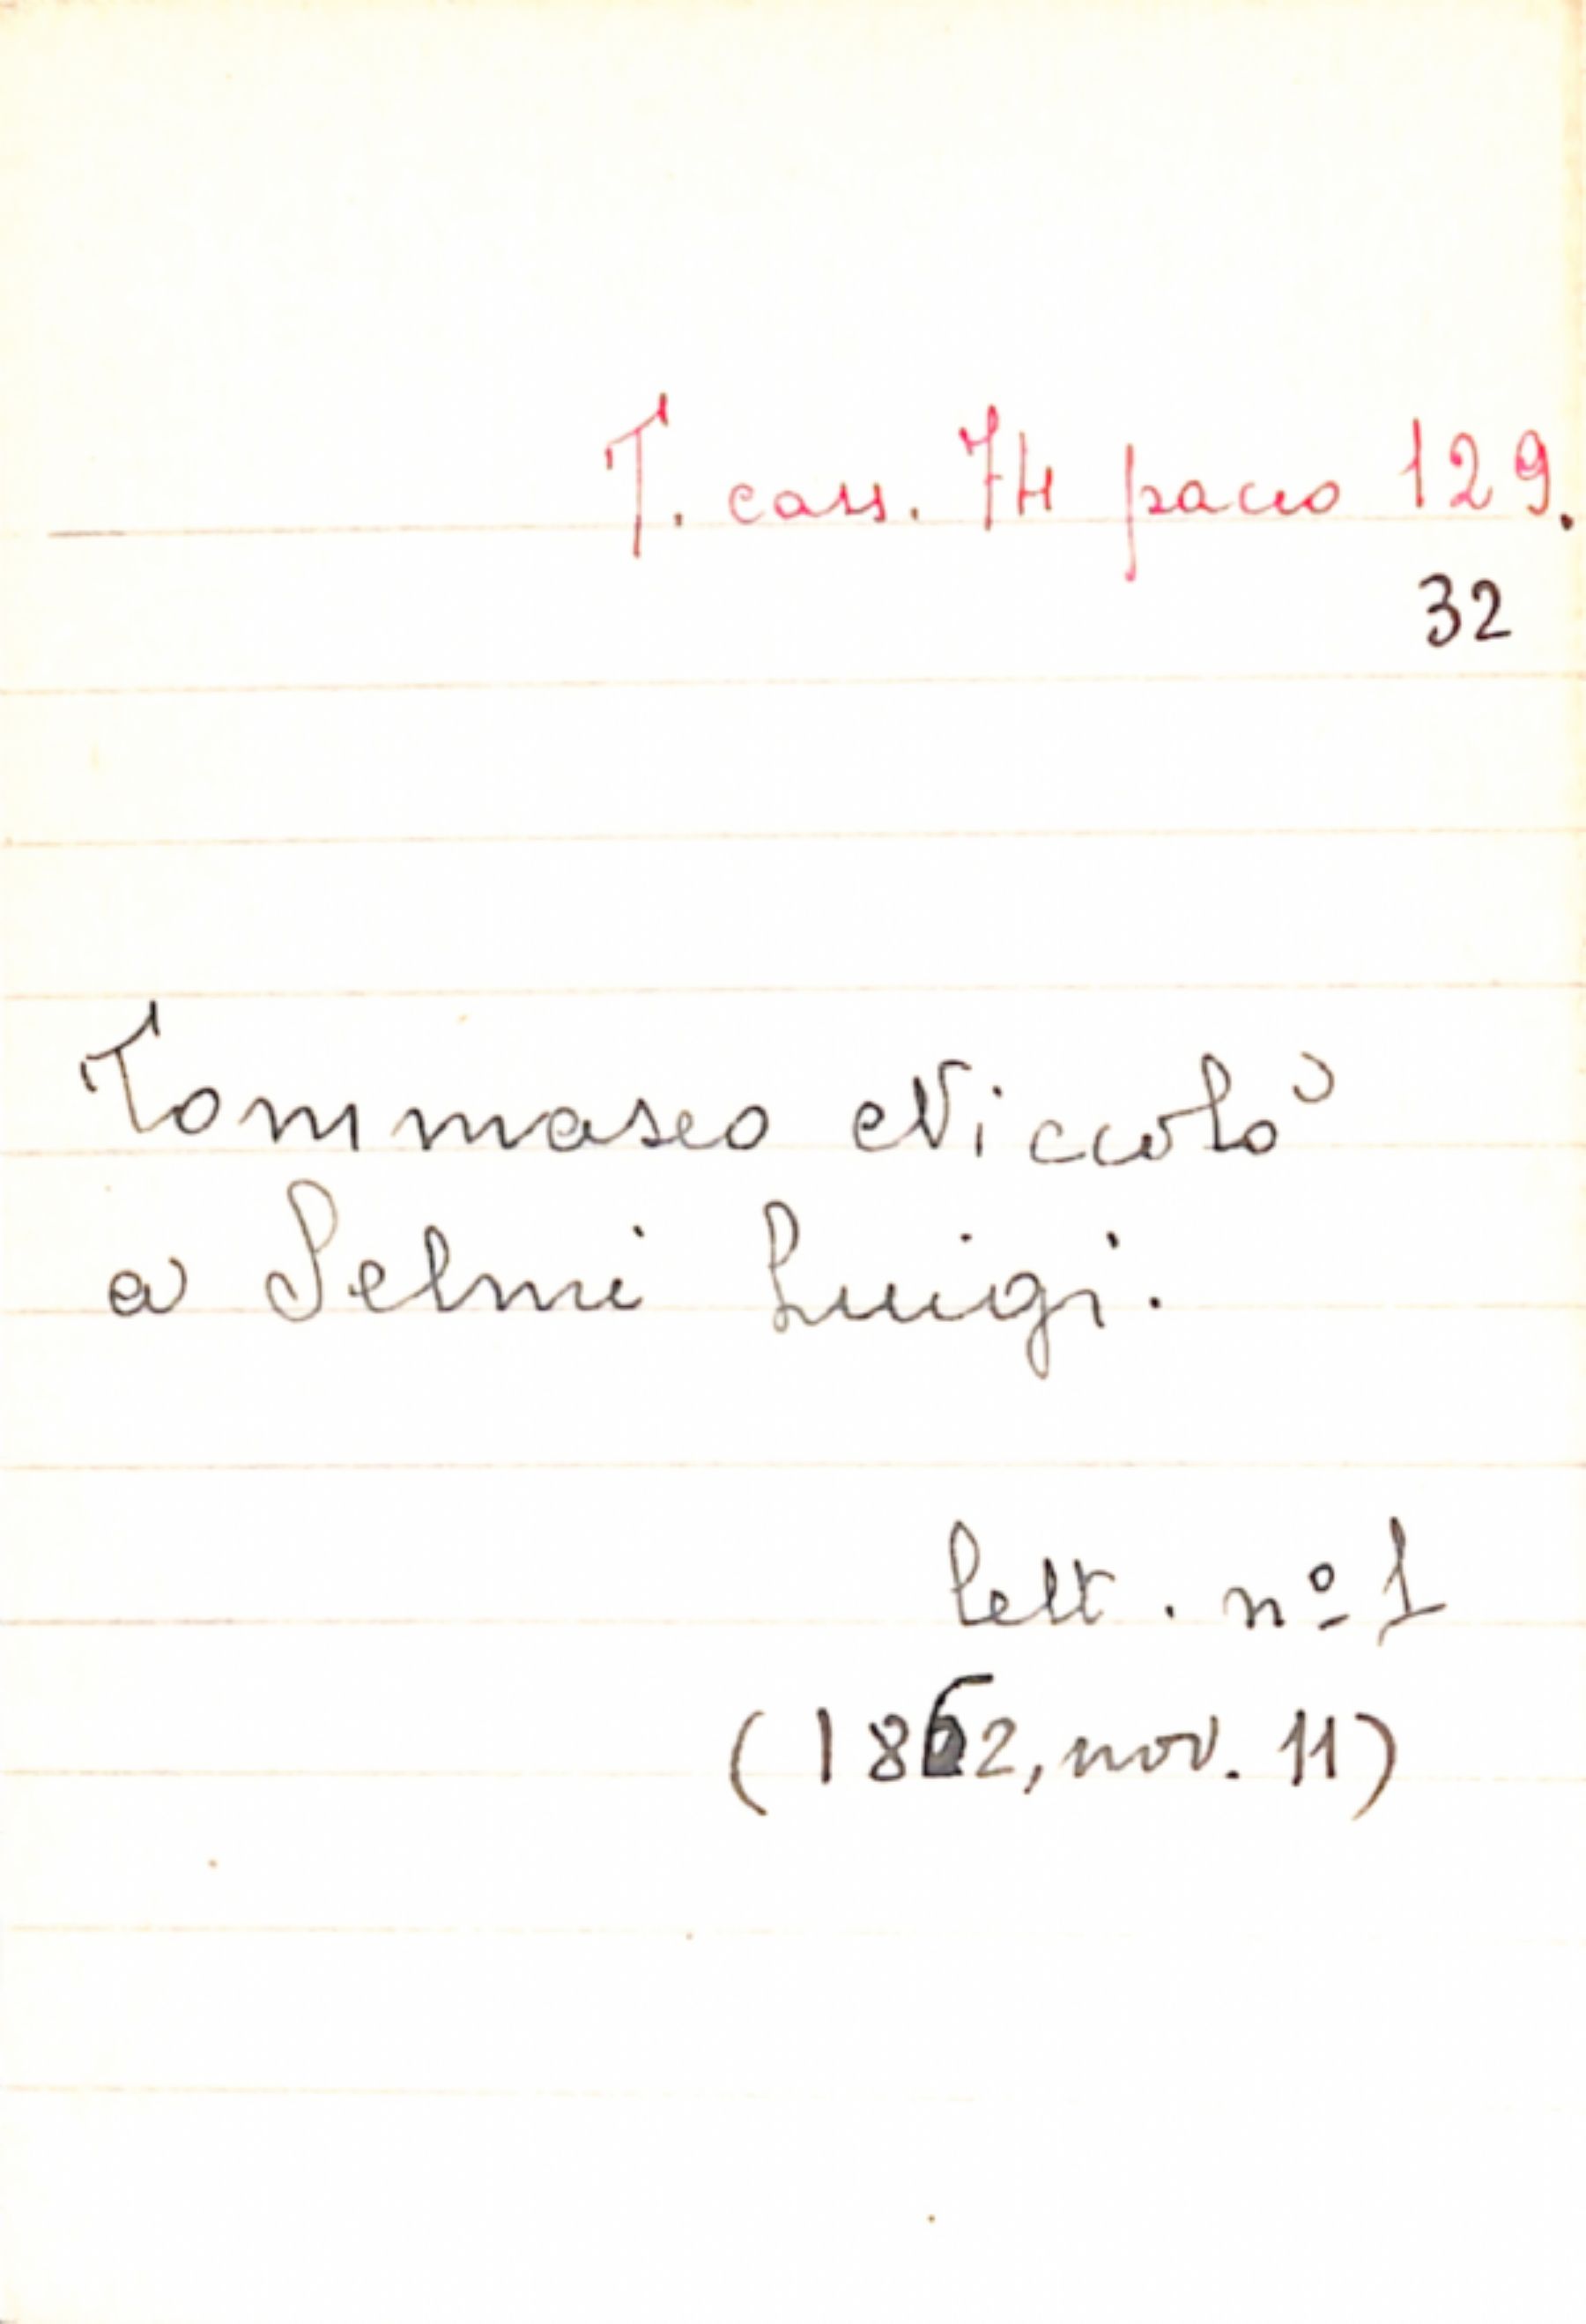 T. cass. 74 pacco 129.
32
Tommaseo Niccolò
a Selmi Luigi.
lett. nº 1
(1862, nov. 11)